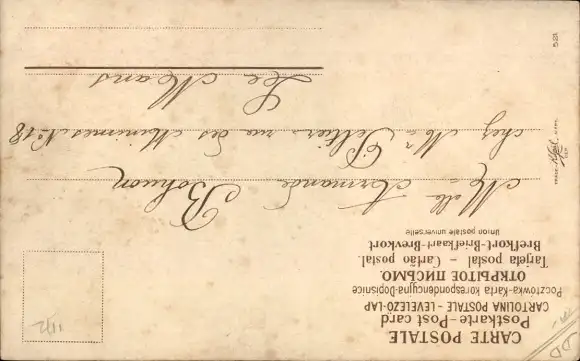 CARTE POSTALE
Postkarte-Post card
CARTOLINA POSTALE - LEVELEZÖ-LAP
Pocztówka-Karta korespondencyjna-Dopisnice
ОТКРЫТОЕ ПИСЬМО.
Tarjeta postal - Cartão postal.
Brefkort-Briefkaart-Brevkort
Union postale universelle
Melle Armande Bohuon
chez Mr Pellier rue des Minimes No 18
Le Mans
521